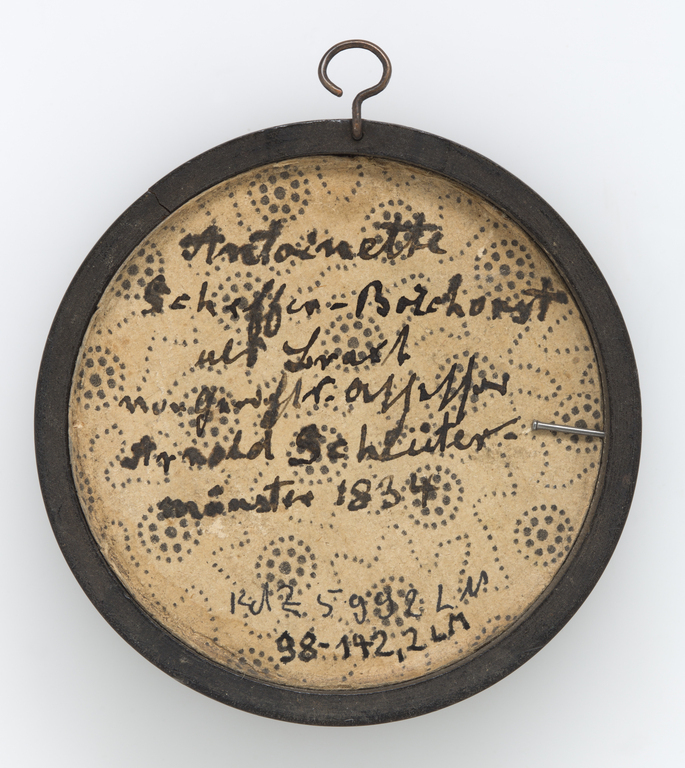 Antoinette
Scheffer-Boichorst
als Braut
von Gericht. Assessor
Arnold Schlüter.
münster 1834
KdZ 5992 LM
98-142,2 LM